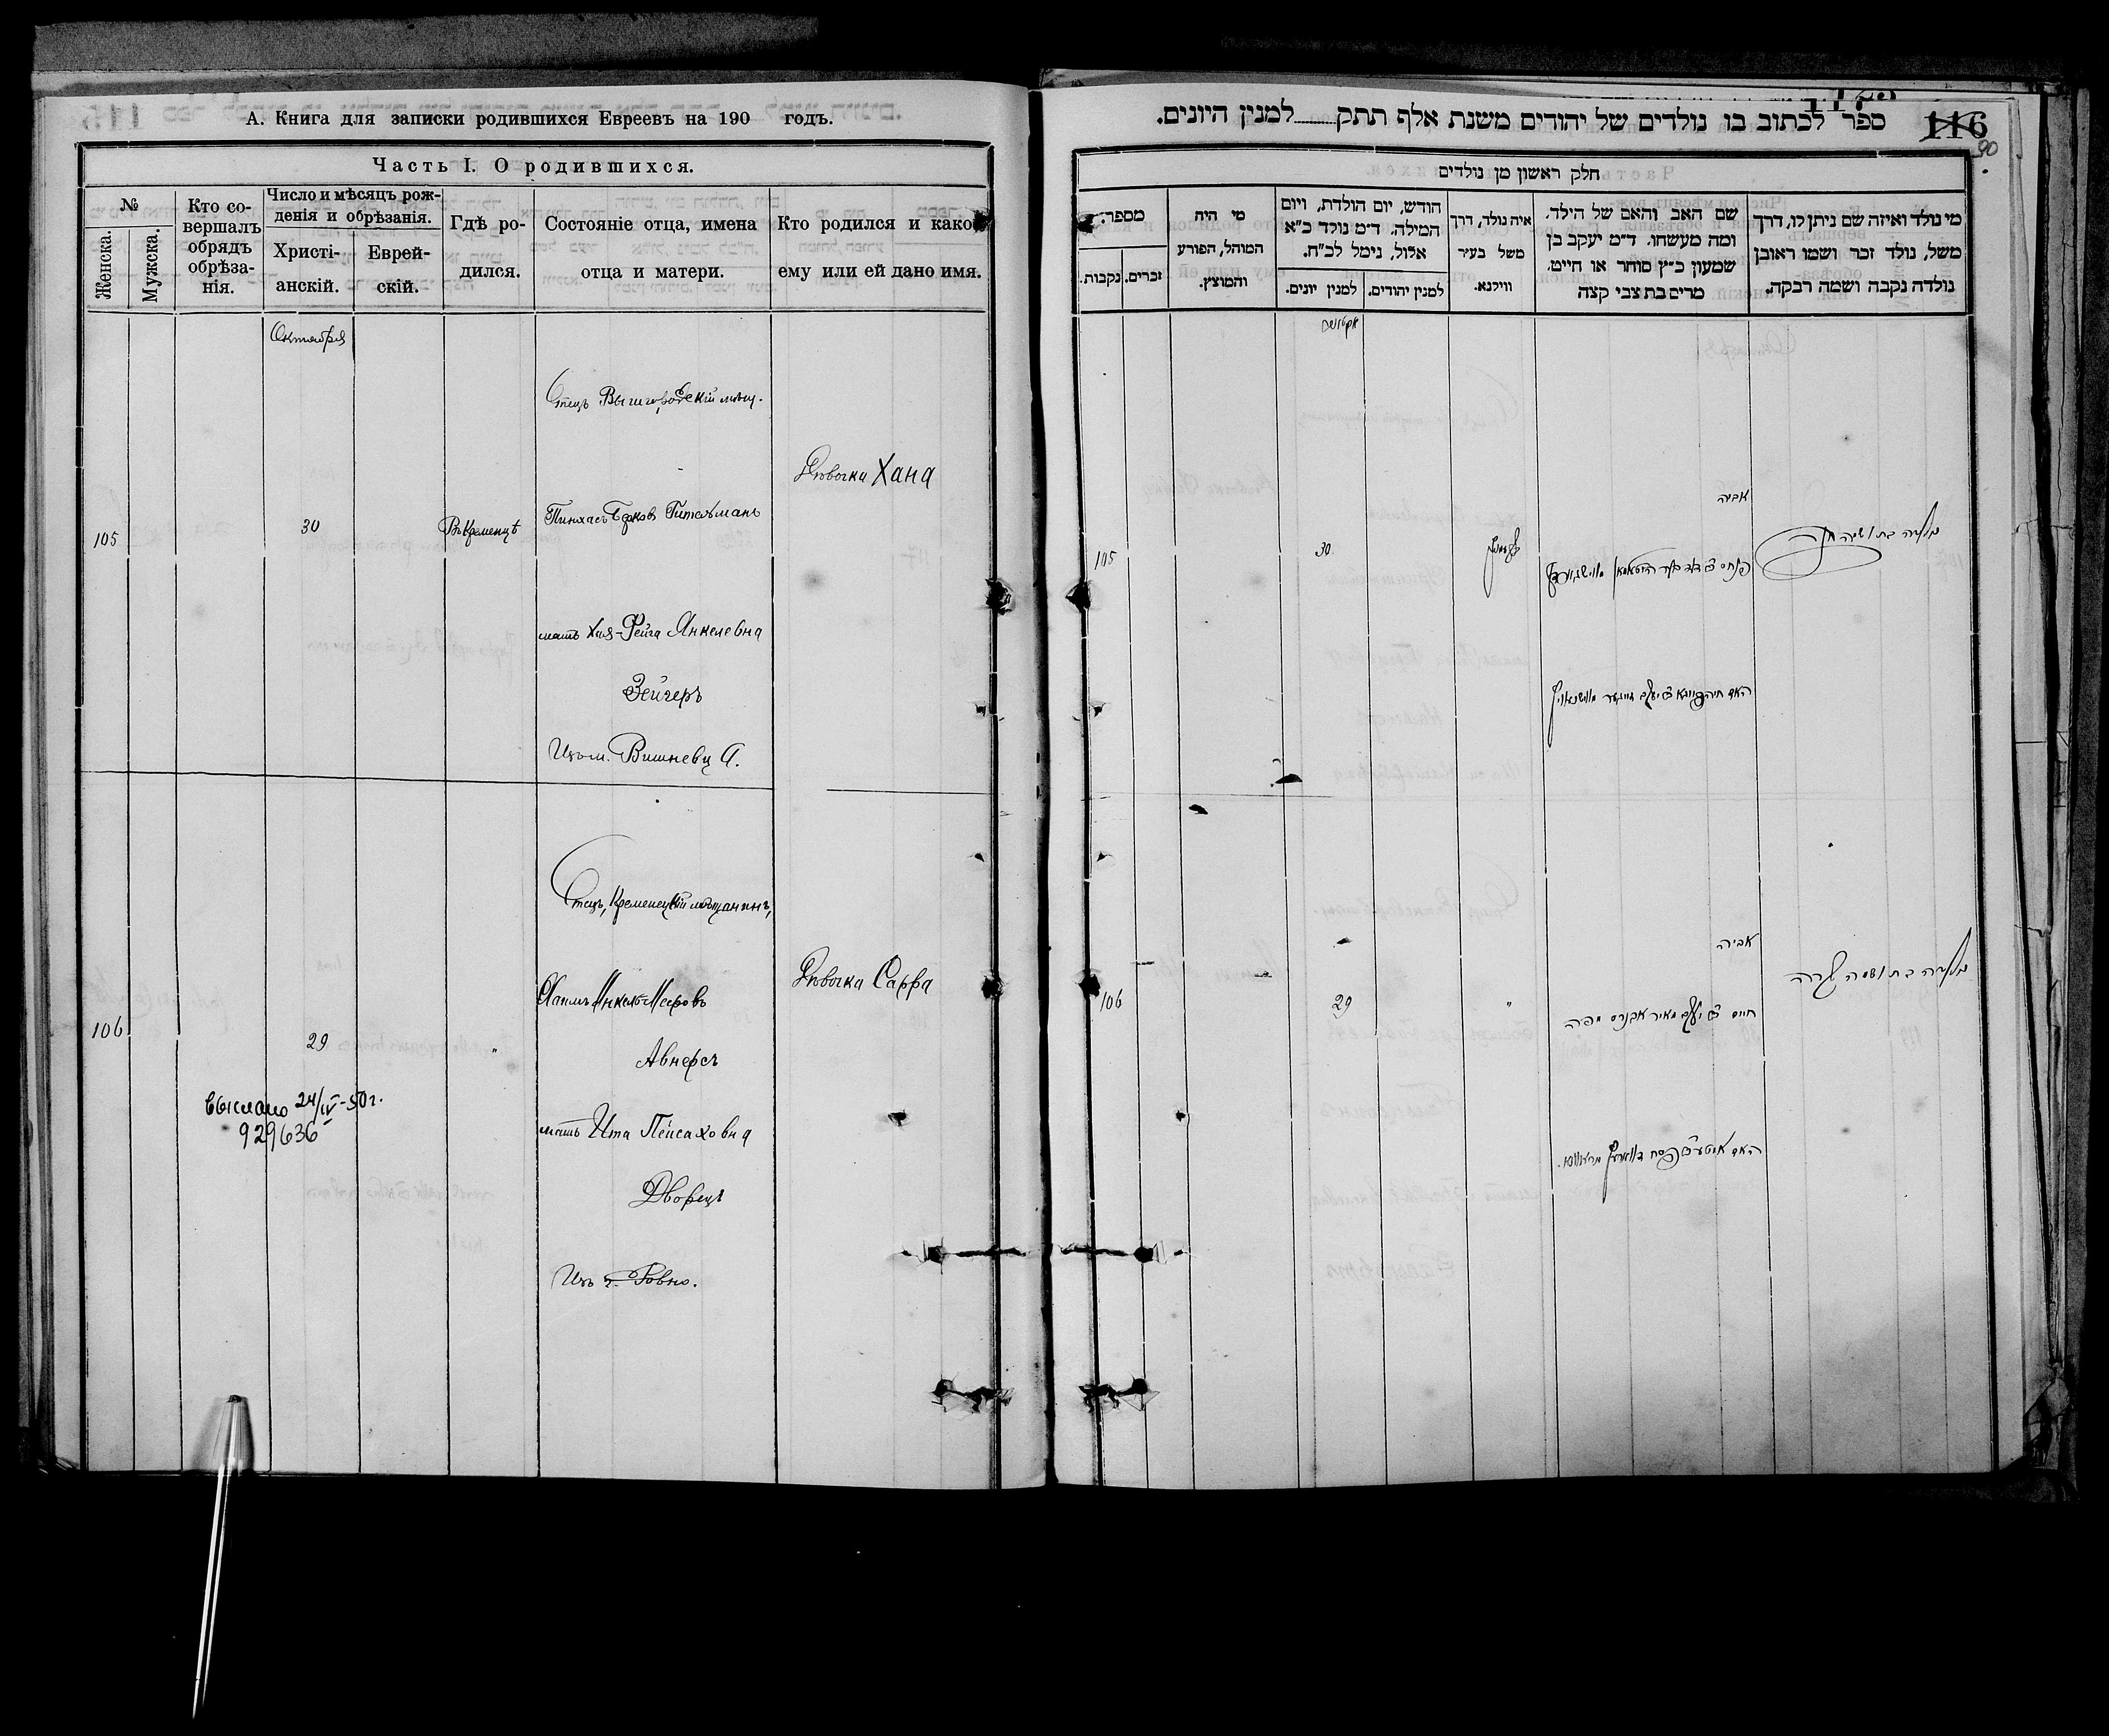 А. Книга для записки родившихся Евреевъ на 190 годъ.
Часть I. О родившихся.
№
Женска.
Мужска.
Кто со-
вершалъ
обрядъ
обрѣза-
нія.
Число и мѣсяцъ рож-
денія и обрѣзанія.
Христі-
анскій.
Еврей-
скій.
Гдѣ ро-
дился.
Состояніе отца, имена
отца и матери.
Кто родился и како
ему или ей дано имя.
Октября
105
30
Въ Кременцѣ
Отецъ Вышгородскій мѣщ.
Пинхасъ Берковъ Гительманъ
мать Хая-Фейга Янкелевна
Зейгеръ
Изъ м. Вишневца.
Дѣвочка Хана
106
29
"
Отецъ, Кременецкій мѣщанинъ,
Хаимъ Янкель-Мееровъ
Авнеръ
мать Ита Пейсаховна
Дворецъ
Изъ г. Ровно.
Дѣвочка Сарра
Выслано 24/IV-50г.
929636
ספר לכתוב בו נולדים של יהודים משנת אלף תתק למנין היונים.
116
90
חלק ראשון מן נולדים
מספר.
זכרים.
נקבות.
מי היה
המוהל, הפורע
והמוצץ.
חודש, יום הולדת, ויום
המילה. ד״מ נולד כ״א
אלול, נימל לכ״ח.
למנין יונים.
למנין יהודים.
איה נולד, דרך
משל בעיר
ווילנא.
שם האב והאם של הילד.
ומה מעשהו. ד״מ יעקב בן
שמעון כ״ץ סוחר או חייט.
מרים בת צבי קצה
מי נולד ואיזה שם ניתן לו, דרך
משל, נולד זכר ושמו ראובן
נולדה נקבה ושמה רבקה.
105
30
אביה
נולדה בת ושמה חנה
106
29
"
אביה
חיים ב״ר יעקב מאיר
נולדה בת ושמה שרה